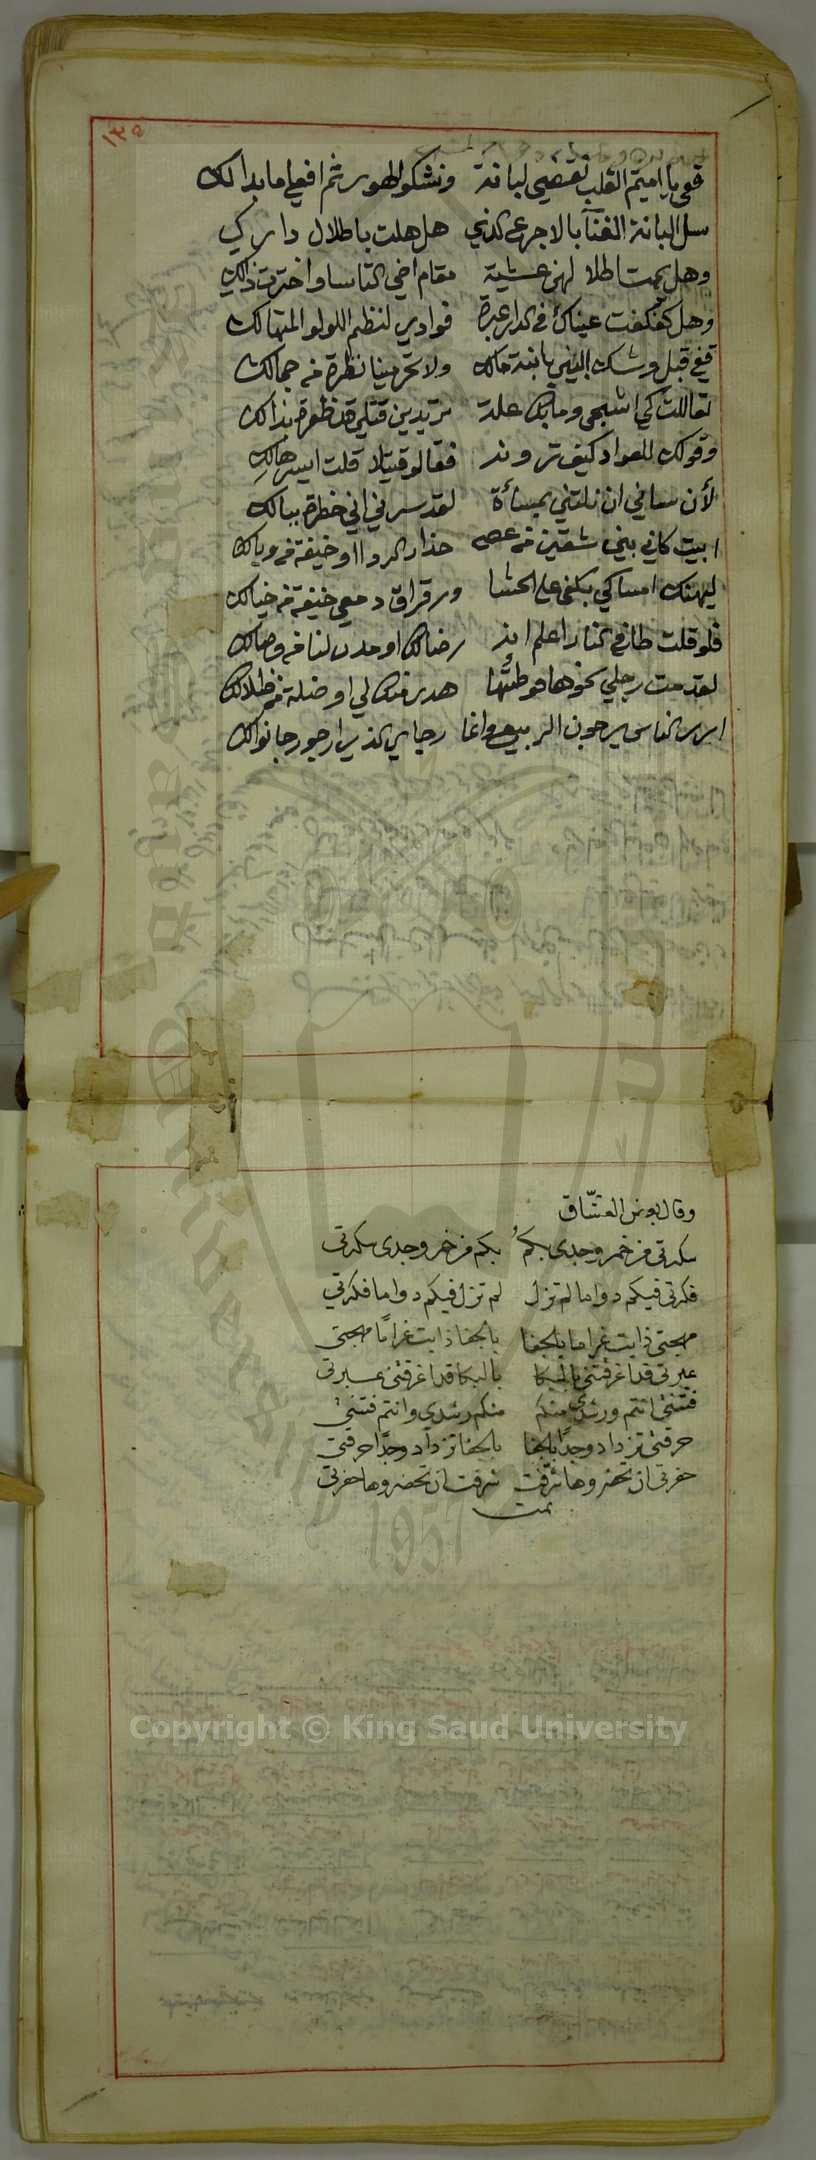 ١٣٥
قفي يا اميم القلب نقضي لبانة ونشكو الهوى ثم افعلي ما بدالك
سل البانة الغنآ بالاجرع الذي هل هلت باطلال دارك
وهل يمت اطلالهن عشية مقام اخي الباسا واخترت ذالك
وهل كفكفت عيناك في الدار عبرة فوادي لنظم اللولو المتهالك
قفي قبل وشك البين يا بنة مالك ولا تحرمينا نظرة من جمالك
تعاللت كي اشجى وما بك علة تريدين قتلي قد ظفرت بذالك
وقولك للعواد كيف ترونه فقالو قتيلا قلت ايسر هالك
لأن ساني ان نلتني بمسأة لقد سرني اني خطرت ببالك
ابيت كاني بين شقين من عصى حذار الردا او خيفة من زيالك
ليهنك امساكي بكفي على الحشا ورقراق دمعي خيفة من خيالك
فلو قلت طا في النار اعلم انه رضالك او مدن لنا من وصالك
لقدمت رجلي نحوها فوطئتها هدى منك لي او ضلة من ضلالك
ارى الناس يرجون الربيع وانما رجاي الذي ارجو رجا نوالك
وقال بعض العشّاق
سكرتي من خمر وجدي بكمُ بكم من خمر وجدي سكرتي
فكرتي فيكم دواما لم تزل لم تزل فيكم دواما فكرتي
مهجتي ذابت غراما بالجفا بالجفا ذابت غرامًا مهجتي
عبرتي قد اغرقتني بالبكا بالبكا قد اغرقتني عبرتي
فتنتي انتم ورشدي منكم منكم رشدي وانتم فتنتي
حرقتي تزداد وجدًا بالجفا بالجفا تزداد وجدًا حرقتي
حضرتي ان تحضروها شرّفت شرفت ان تحضروها حضرتي
تمت
Copyright © King Saud University
King Saud University
1957